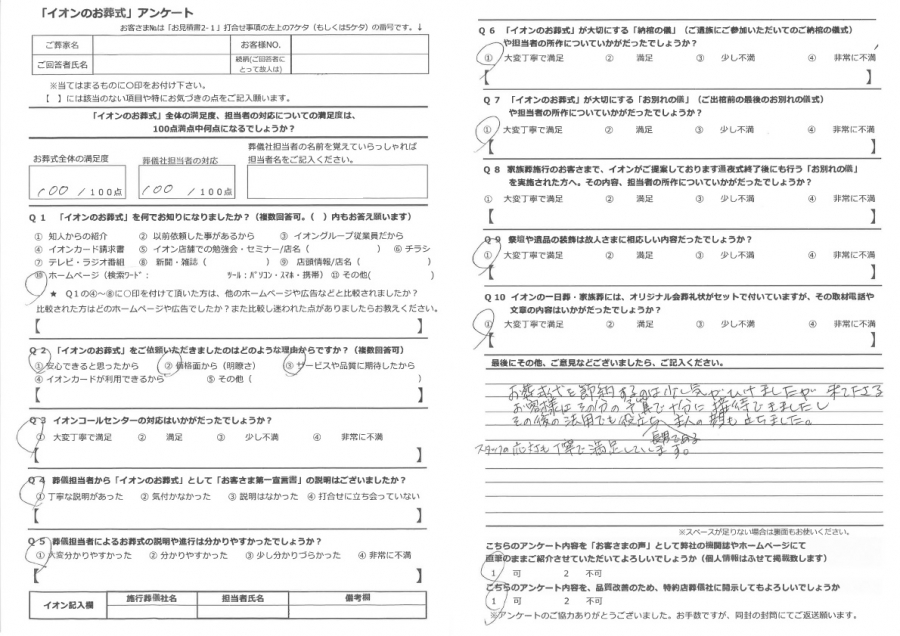 「イオンのお葬式」アンケート
お客さま№は「お見積書2-１」打合せ事項の左上の7ケタ（もしくは5ケタ）の番号です。↓
ご葬家名 お客様NO.
ご回答者氏名 続柄(ご回答者にとって故人は)
※当てはまるものに○印をお付け下さい。
【　】には該当のない項目や特にお気づきの点をご記入願います。
「イオンのお葬式」全体の満足度、担当者の対応についての満足度は、
100点満点中何点になるでしょうか？
お葬式全体の満足度 葬儀社担当者の対応 葬儀社担当者の名前を覚えていらっしゃれば
担当者名をご記入ください。
100 / 100点 100 / 100点
Ｑ１ 「イオンのお葬式」を何でお知りになりましたか？（複数回答可。（　）内もお答え願います）
① 知人からの紹介 ② 以前依頼した事があるから ③ イオングループ従業員だから
④ イオンカード請求書 ⑤ イオン店舗での勉強会・セミナー/店名（　） ⑥ チラシ
⑦ テレビ・ラジオ番組 ⑧ 新聞・雑誌（　） ⑨ 店頭情報/店名（　）
⑩ ホームページ（検索ワード： ﾂｰﾙ：ﾊﾟｿｺﾝ・ｽﾏﾎ・携帯） ⑪ その他(　)
★ Ｑ１の④～⑧に○印を付けて頂いた方は、他のホームページや広告などと比較されましたか？
比較された方はどのホームページや広告でしたか？また比較し迷われた点がありましたらお教えください。
【　】
Ｑ２ 「イオンのお葬式」をご依頼いただきましたのはどのような理由からですか？（複数回答可）
① 安心できると思ったから ② 価格面から（明瞭さ） ③ サービスや品質に期待したから
④ イオンカードが利用できるから ⑤ その他（　）
【　】
Ｑ３ イオンコールセンターの対応はいかがだったでしょうか？
① 大変丁寧で満足 ② 満足 ③ 少し不満 ④ 非常に不満
【　】
Ｑ４ 葬儀担当者から「イオンのお葬式」として「お客さま第一宣言書」の説明はございましたか？
① 丁寧な説明があった ② 気付かなかった ③ 説明はなかった ④ 打合せに立ち会っていない
【　】
Ｑ５ 葬儀担当者によるお葬式の説明や進行は分かりやすかったでしょうか？
① 大変分かりやすかった ② 分かりやすかった ③ 少し分かりづらかった ④ 非常に不満
【　】
イオン記入欄 施行葬儀社名 担当者氏名 備考欄
Ｑ６ 「イオンのお葬式」が大切にする「納棺の儀」（ご遺族にご参加いただいてのご納棺の儀式）
や担当者の所作についていかがだったでしょうか？
① 大変丁寧で満足 ② 満足 ③ 少し不満 ④ 非常に不満
【　】
Ｑ７ 「イオンのお葬式」が大切にする「お別れの儀」（ご出棺前の最後のお別れの儀式）
や担当者の所作についていかがだったでしょうか？
① 大変丁寧で満足 ② 満足 ③ 少し不満 ④ 非常に不満
【　】
Ｑ８ 家族葬施行のお客さまで、イオンがご提案しております通夜式終了後にも行う「お別れの儀」
を実施された方へ。その内容、担当者の所作についていかがだったでしょうか？
① 大変丁寧で満足 ② 満足 ③ 少し不満 ④ 非常に不満
【　】
Ｑ９ 祭壇や遺品の装飾は故人さまに相応しい内容だったでしょうか？
① 大変丁寧で満足 ② 満足 ③ 少し不満 ④ 非常に不満
【　】
Ｑ10 イオンの一日葬・家族葬には、オリジナル会葬礼状がセットで付いていますが、その取材電話や
文章の内容はいかがだったでしょうか？
① 大変丁寧で満足 ② 満足 ③ 少し不満 ④ 非常に不満
【　】
最後にその他、ご意見などございましたら、ご記入ください。
お葬式代を節約するのは少し気がひけましたが 来て下さる
お客様はその分の予算で十分に接待できましたし
その後の法用でも役立ち 主人の顔も立ちました。
長男である
スタッフの応対も丁寧で満足しています。
※スペースが足りない場合は裏面もお使いください。
こちらのアンケート内容を「お客さまの声」として弊社の機関誌やホームページにて
直筆のままご紹介させていただいてよろしいでしょうか（個人情報はふせて掲載致します）
1 可 2 不可
こちらのアンケート内容を、品質改善のため、特約店葬儀社に開示してもよろしいでしょうか
1 可 2 不可
※アンケートのご協力ありがとうございました。お手数ですが、同封の封筒にてご返送願います。